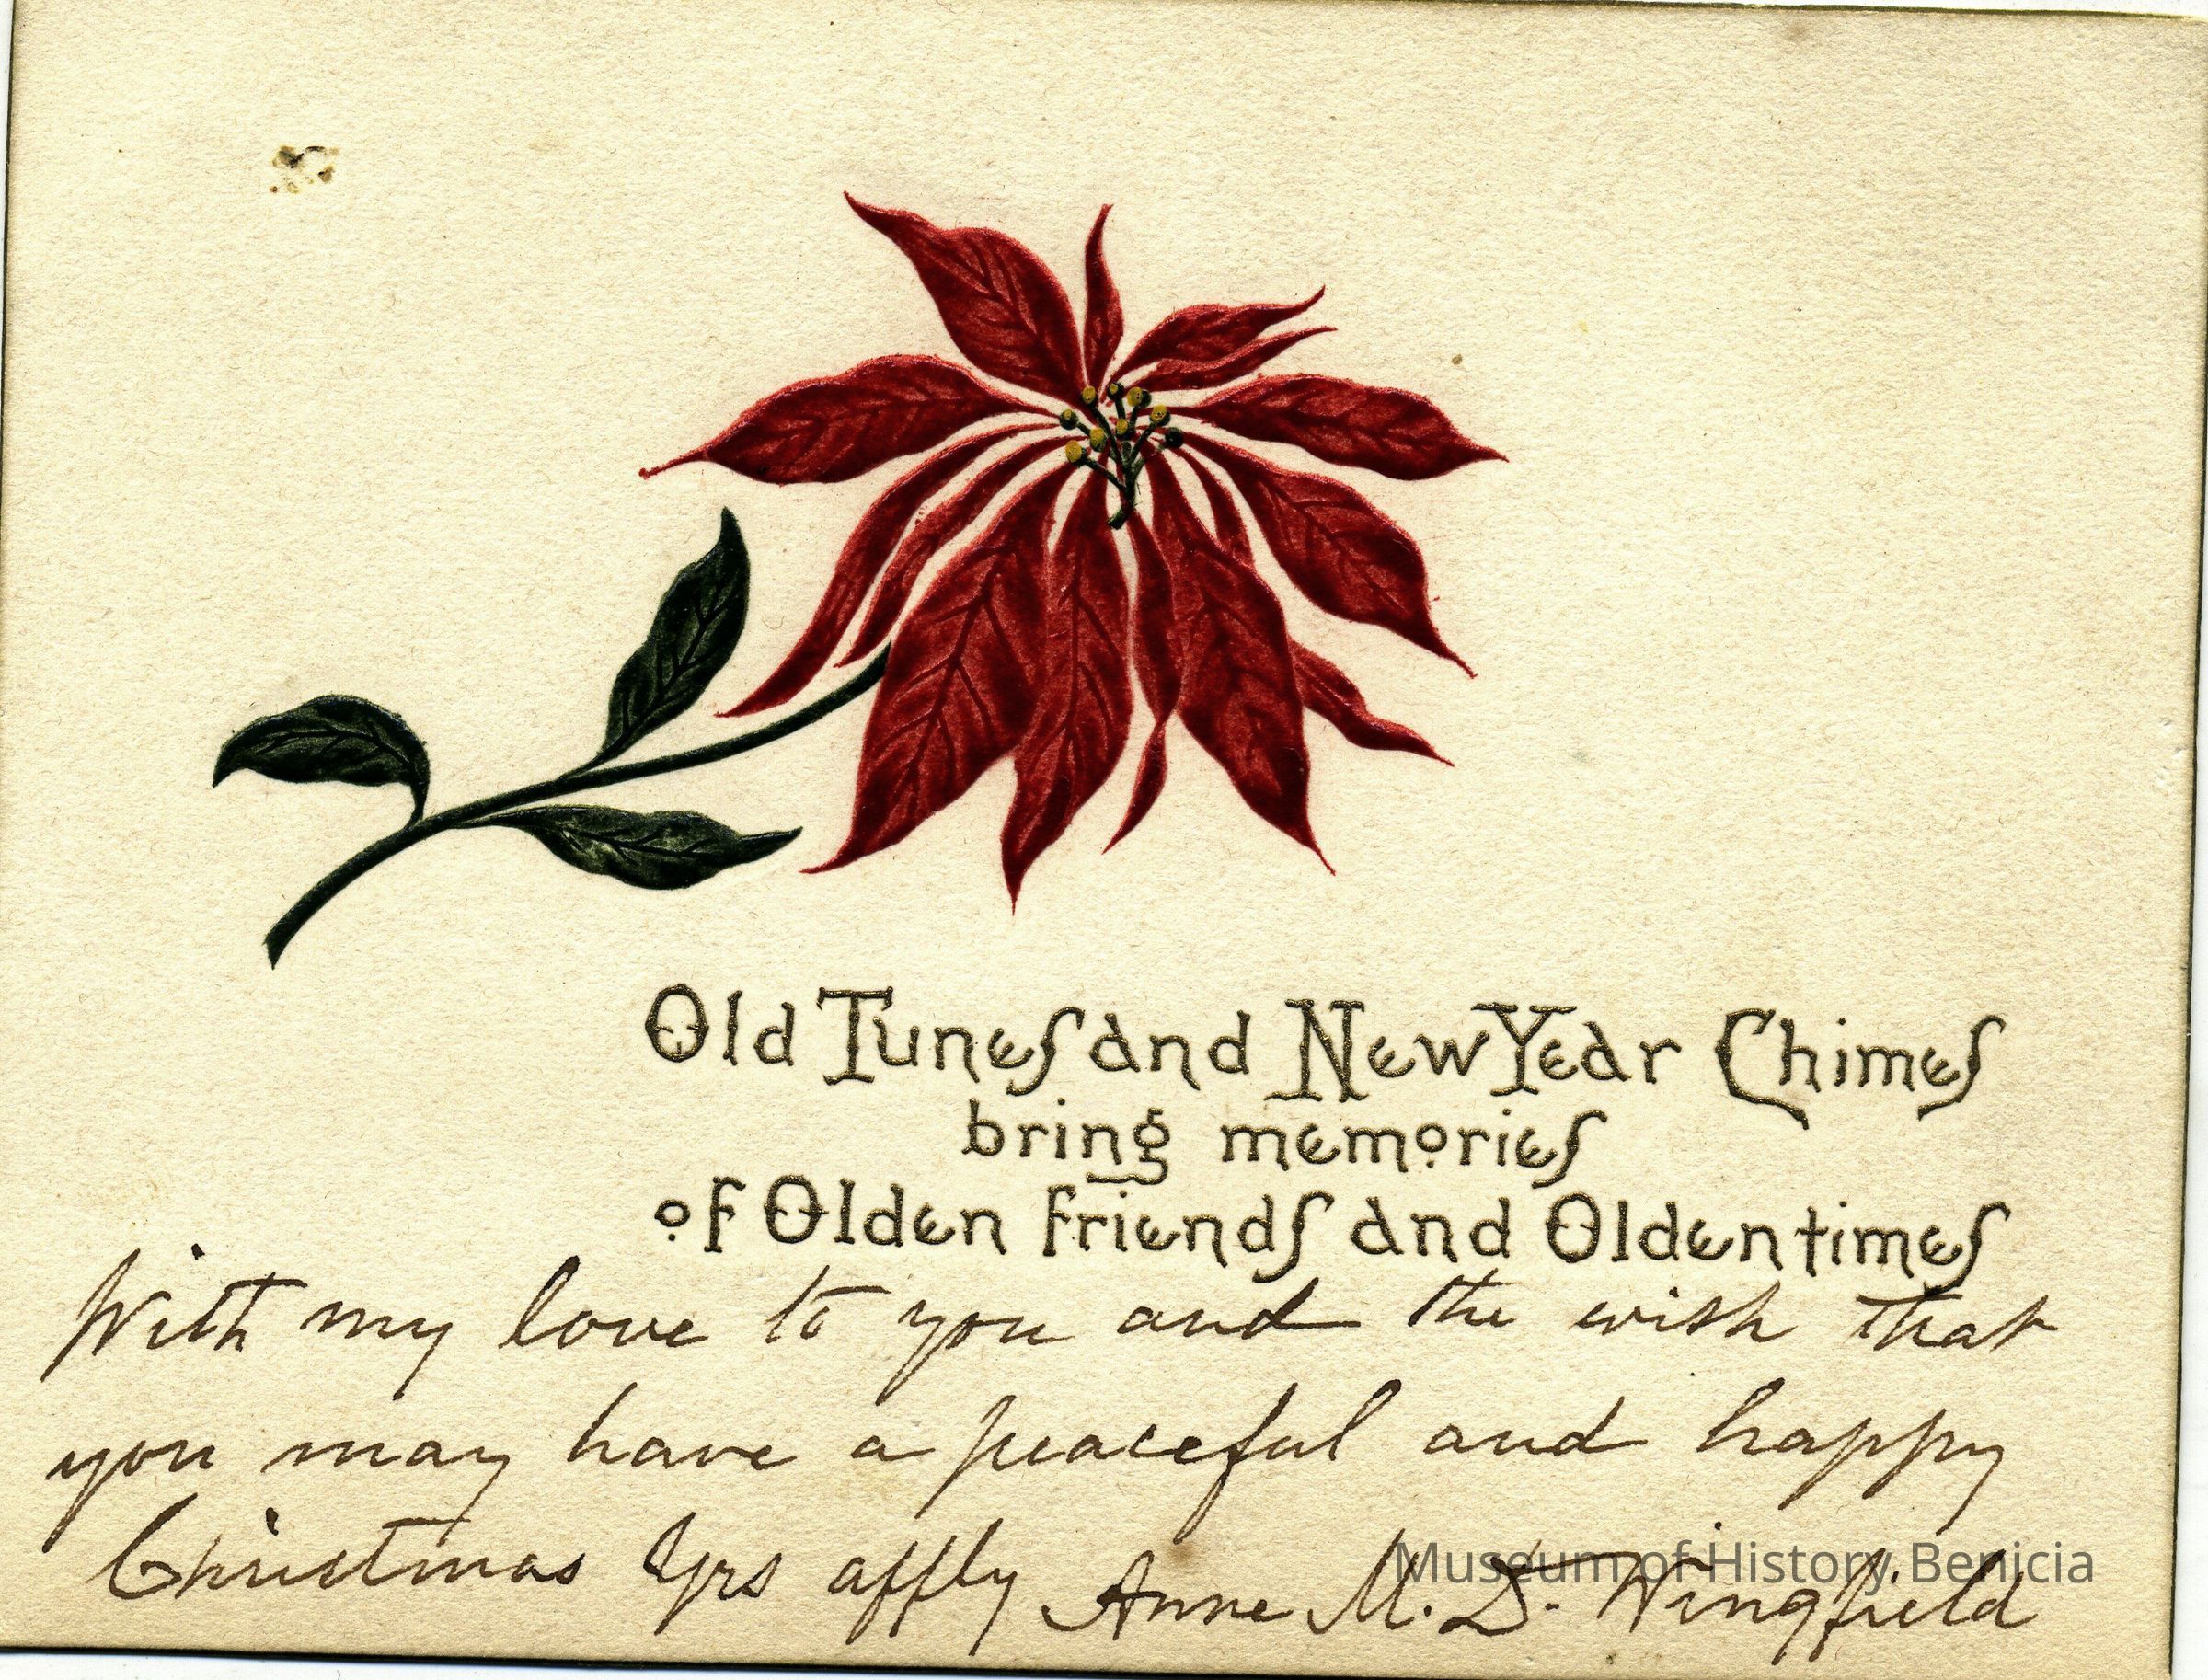 Old Tunes and New Year Chimes
bring memories
of Olden Friends and Olden times
With my love to you and the wish that
you may have a peaceful and happy
Christmas Yrs affly Anne M. D. Wingfield
Museum of History Benicia